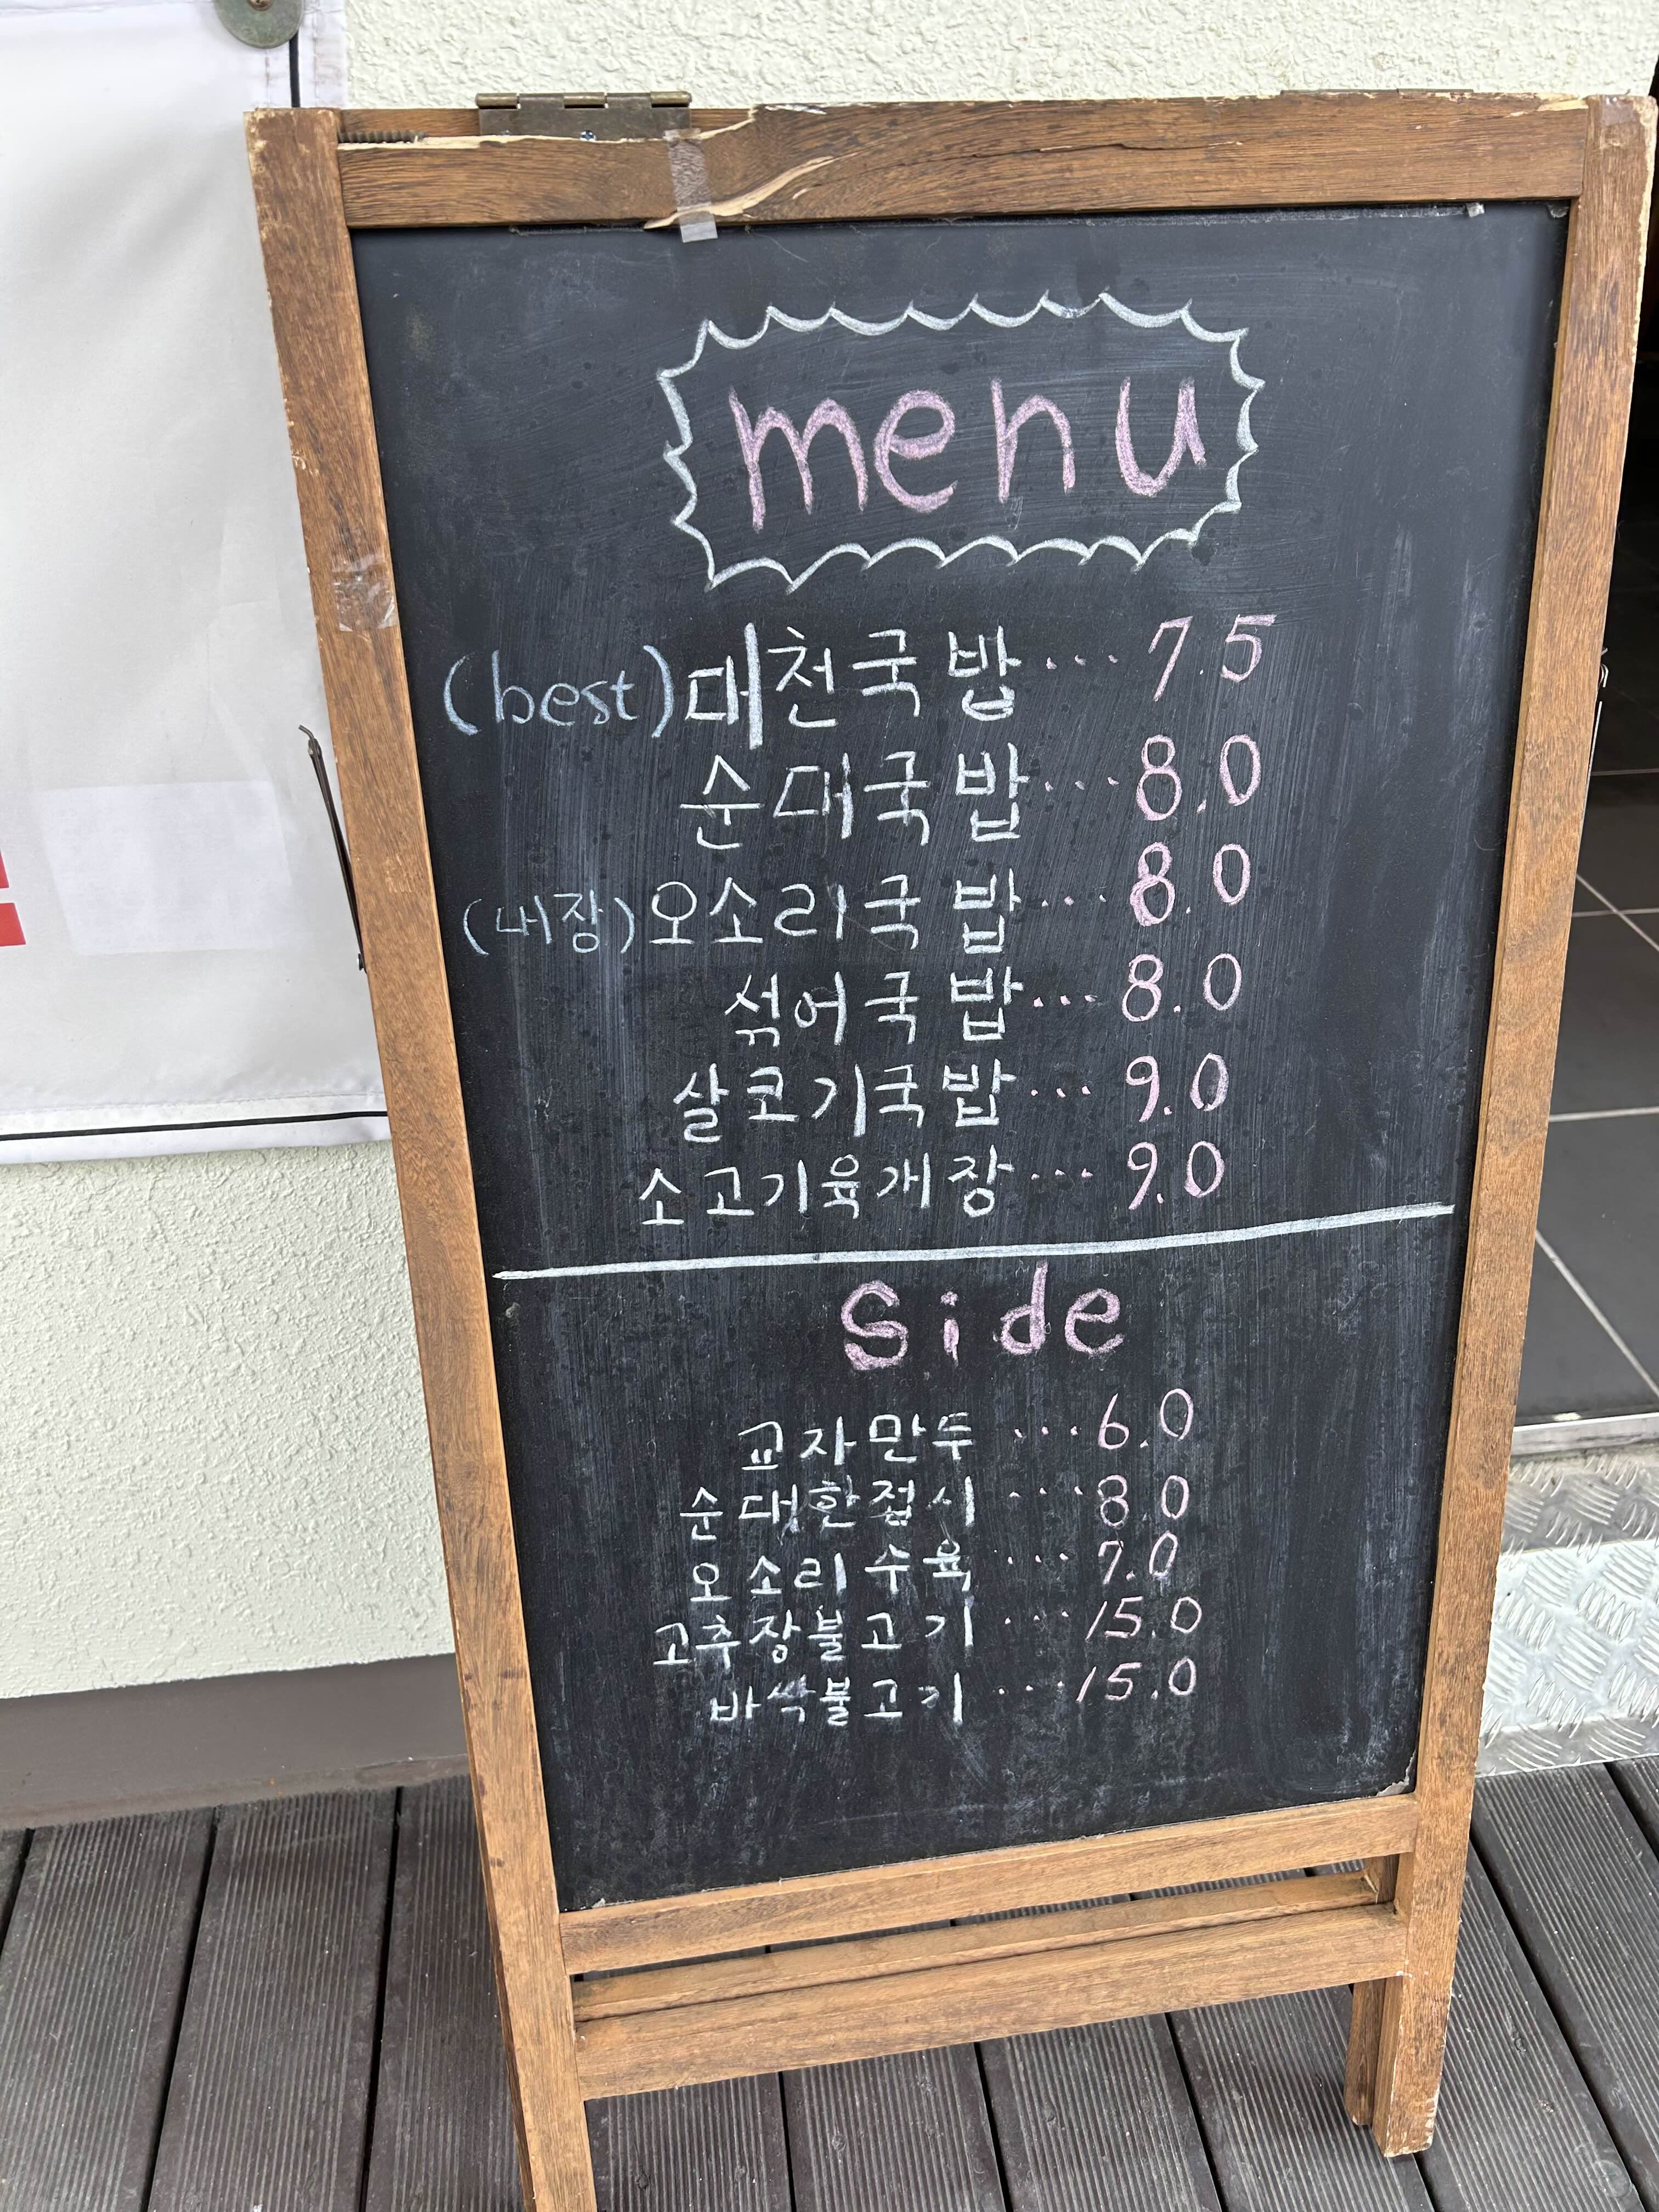 menu
(best) 대천국밥 ... 7.5
순대국밥 ... 8.0
(내장) 오소리국밥 ... 8.0
섞어국밥 ... 8.0
살코기국밥 ... 9.0
소고기육개장 ... 9.0
side
교자만두 ... 6.0
순대한접시 ... 8.0
오소리수육 ... 7.0
고추장불고기 ... 15.0
바싹불고기 ... 15.0